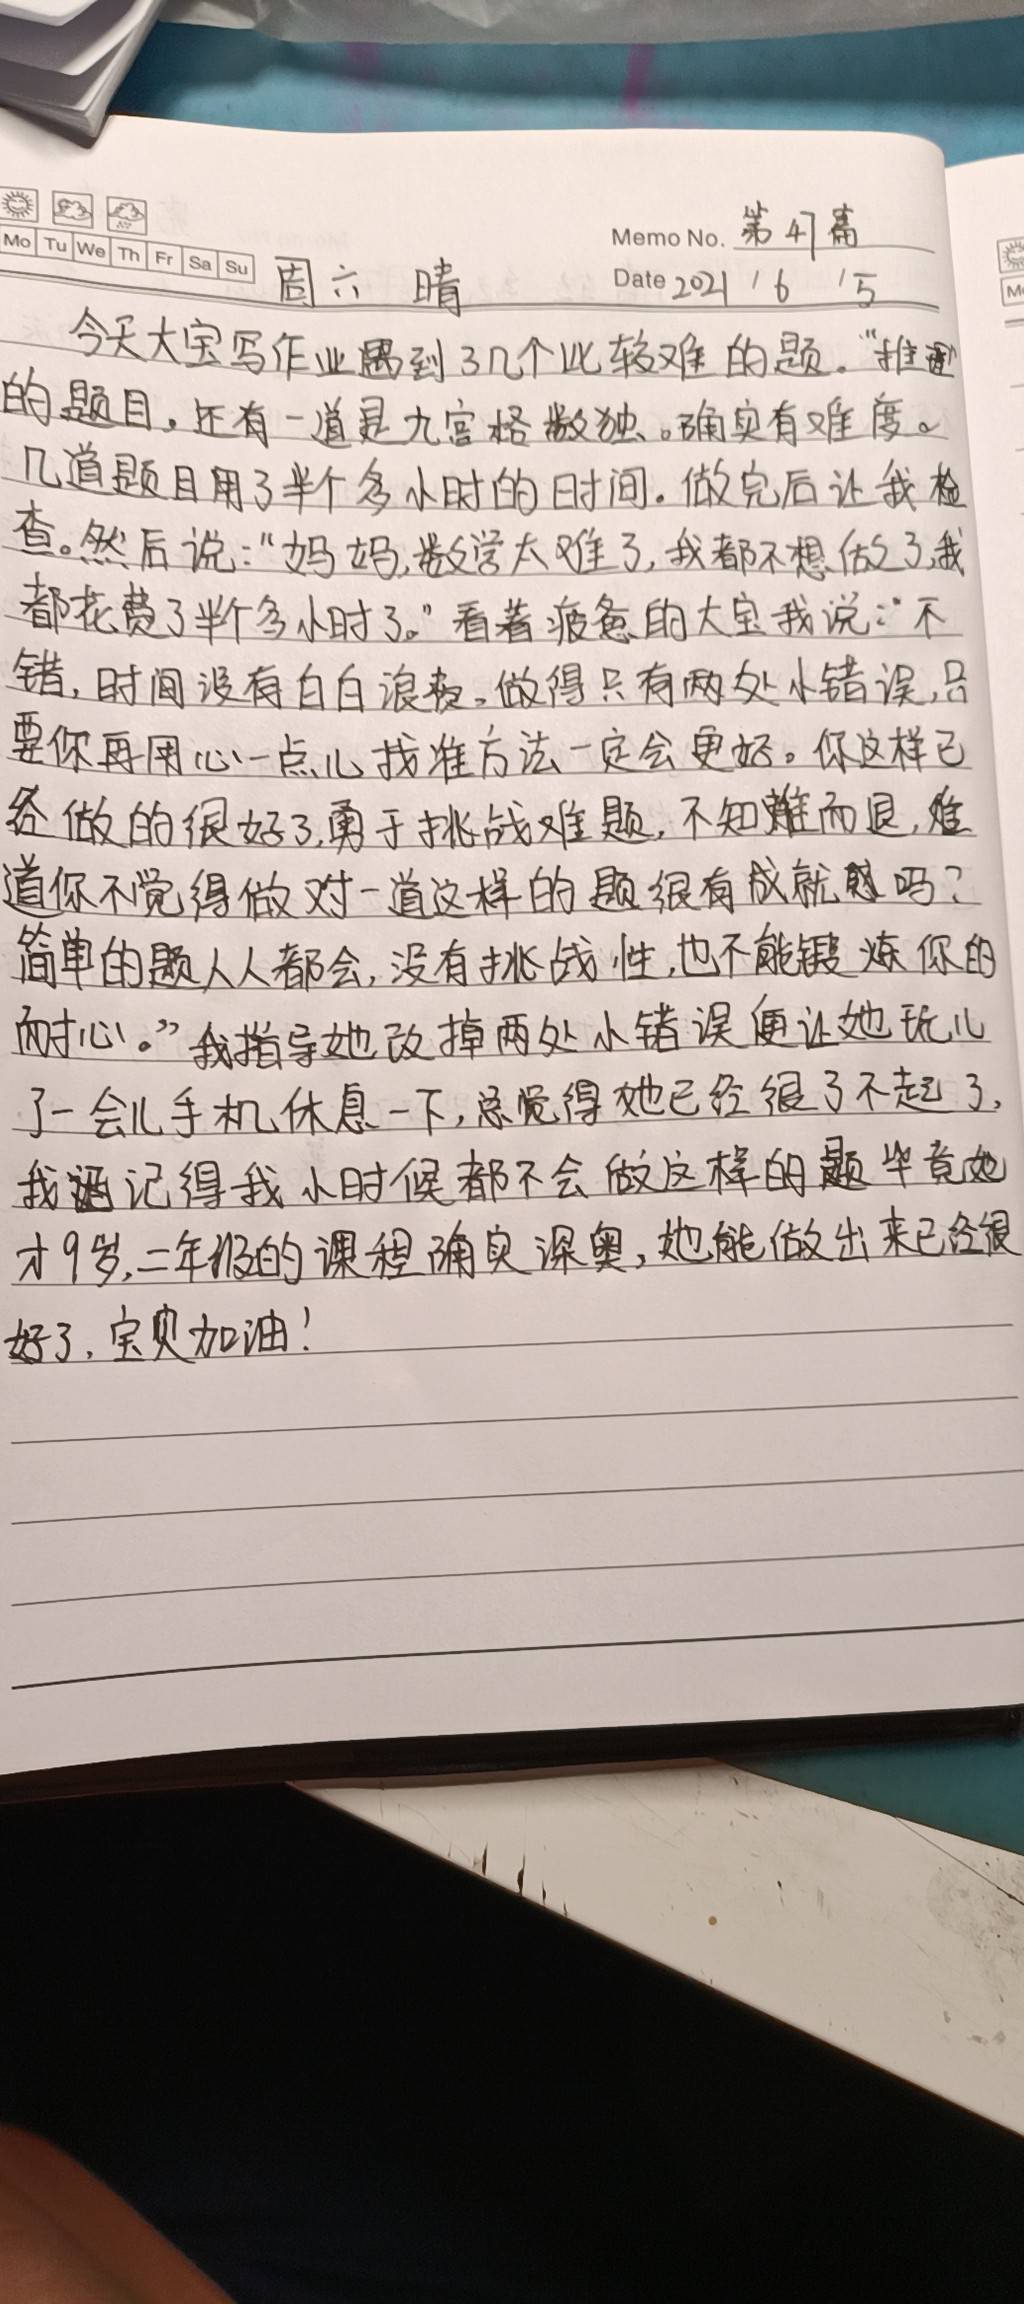 Memo No. 第47篇
Mo Tu We Th Fr Sa Su
周六 晴 Date 2021/6/5
今天大宝写作业遇到了几个比较难的题。“推理
的题目。还有一道是九宫格数独。确实有难度。
几道题目用了半个多小时的时间。做完后让我检
查。然后说:“妈妈,数学太难了,我都不想做了,我
都花费了半个多小时了。”看着疲惫的大宝我说:“不
错,时间没有白白浪费。做得只有两处小错误,只
要你再用心一点儿找准方法一定会更好。你这样已
经做的很好了,勇于挑战难题,不知難而退,难
道你不觉得做对一道这样的题很有成就感吗?
简单的题人人都会,没有挑战性,也不能锻炼你的
耐心。”我指导她改掉两处小错误便让她玩儿
了一会儿手机休息一下,总觉得她已经很了不起了,
我记得我小时候都不会做这样的题毕竟她
才9岁,二年级的课程确实深奥,她能做出来已经很
好了,宝贝加油!